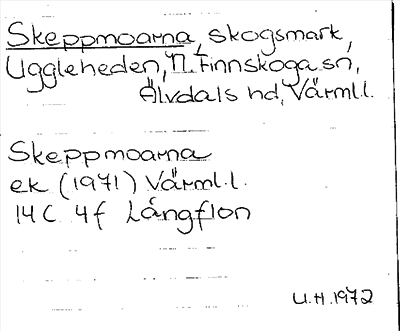 Skeppmoarna, skogsmark,
Uggleheden, N. Finnskoga sn,
Älvdals hd, Värml.l.
Skeppmoarna
ek (1971) Värml.l.
14 C 4f Långflon
U.H. 1972